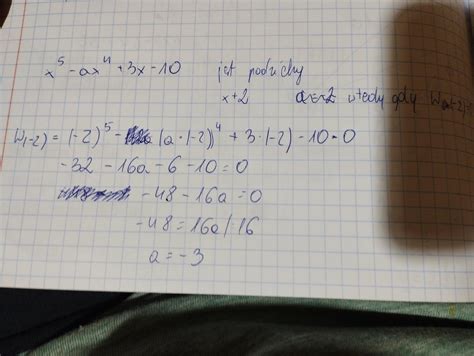 x⁵ - ax⁴ + 3x - 10 jest podzielny
x+2 wtedy gdy W(-2)
W(-2) = (-2)⁵ - (a·(-2)⁴ + 3·(-2) - 10 = 0
-32 - 16a - 6 - 10 = 0
-48 - 16a = 0
-48 = 16a /:16
a = -3